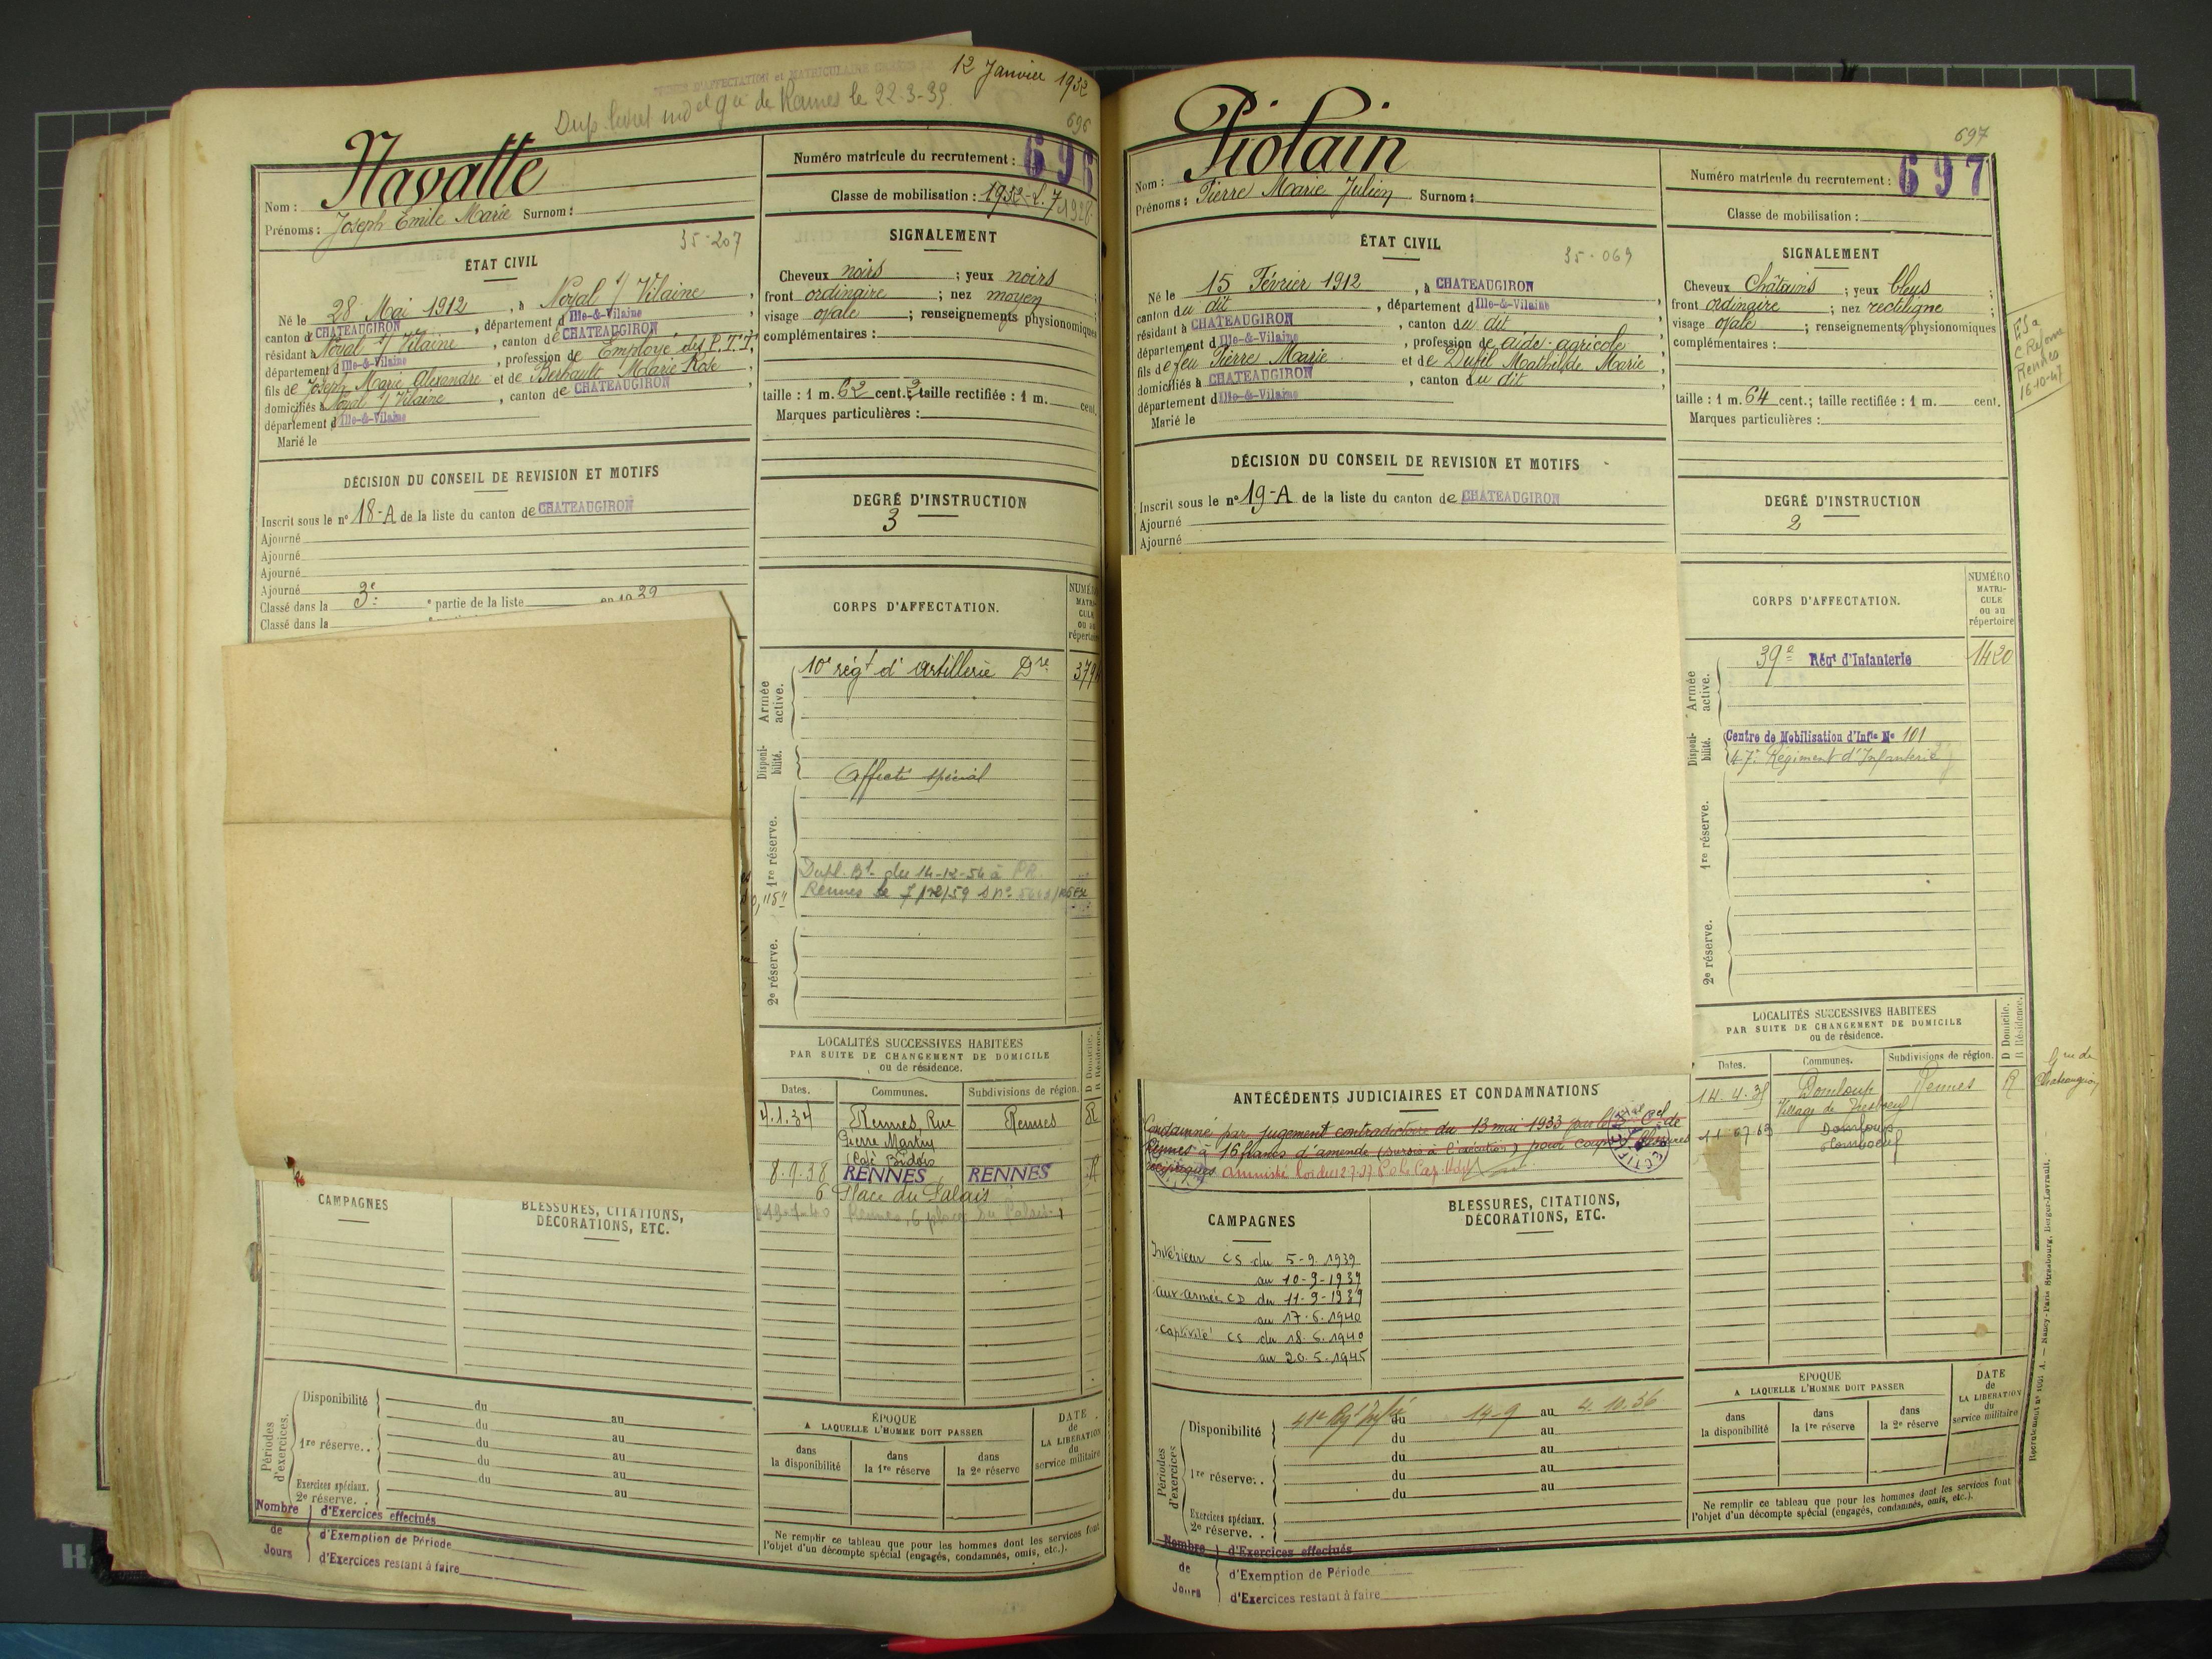 12 Janvier 1932
Dup. livret
de Rennes le 22-3-39.
696
Navatte
Nom :
Prénoms : Joseph Emile Marie Surnom :
Numéro matricule du recrutement : 696
Classe de mobilisation : 1932
35-207
ÉTAT CIVIL
Né le 28 Mai 1912, à Noyal s/ Vilaine,
canton de CHATEAUGIRON, département d'Ille-&-Vilaine,
résidant à Noyal s/ Vilaine, canton de CHATEAUGIRON,
département d'Ille-&-Vilaine, profession de Employé des P.T.T,
fils de Joseph Marie Alexandre et de Berhault Marie Rose,
domiciliés à Noyal s/ Vilaine, canton de CHATEAUGIRON,
département d'Ille-&-Vilaine
Marié le
SIGNALEMENT
Cheveux noirs ; yeux noirs ;
front ordinaire ; nez moyen ;
visage ovale ; renseignements physionomiques
complémentaires :
taille : 1 m. 62 cent. 2 taille rectifiée : 1 m. cent.
Marques particulières :
DÉCISION DU CONSEIL DE REVISION ET MOTIFS
Inscrit sous le n° 18-A de la liste du canton de CHATEAUGIRON
Ajourné
Ajourné
Ajourné
Ajourné
Classé dans la 3e partie de la liste
Classé dans la
DEGRÉ D'INSTRUCTION
3
CORPS D'AFFECTATION.
NUMÉRO
MATRI-
CULE
ou au
répertoire
Armée active.
10e régt d'artillerie Dre
Disponi-bilité.
Affecté spécial
1re réserve.
Dupl. Bt du 14-12-54 à PR.
Rennes le
2e réserve.
LOCALITÉS SUCCESSIVES HABITÉES
PAR SUITE DE CHANGEMENT DE DOMICILE
ou de résidence.
D Domicile.
R Résidence.
Dates. Communes. Subdivisions de région.
4.1.34 Rennes, Rue Rennes R
Pierre Martin
8.9.38 RENNES RENNES R
6 Place du Palais
Rennes, 6 place du Palais
CAMPAGNES
BLESSURES, CITATIONS,
DÉCORATIONS, ETC.
Périodes d'exercices.
Disponibilité du au
du au
1re réserve.. du au
du au
Exercices spéciaux. du au
2e réserve. .
Nombre d'Exercices effectués
de d'Exemption de Période
Jours d'Exercices restant à faire
ÉPOQUE
A LAQUELLE L'HOMME DOIT PASSER
dans la disponibilité
dans la 1re réserve
dans la 2e réserve
DATE
de
LA LIBÉRATION
du
service militaire
Ne remplir ce tableau que pour les hommes dont les services font
l'objet d'un décompte spécial (engagés, condamnés, omis, etc.).
697
Piolain
Nom :
Prénoms : Pierre Marie Julien Surnom :
Numéro matricule du recrutement : 697
Classe de mobilisation :
35-069
ÉTAT CIVIL
Né le 15 Février 1912, à CHATEAUGIRON
canton du dit, département d'Ille-&-Vilaine,
résidant à CHATEAUGIRON, canton du dit,
département d'Ille-&-Vilaine, profession de aide-agricole,
fils de feu Pierre Marie et de Dufil Mathilde Marie,
domiciliés à CHATEAUGIRON, canton du dit,
département d'Ille-&-Vilaine
Marié le
SIGNALEMENT
Cheveux Châtains ; yeux bleus ;
front ordinaire ; nez rectiligne ;
visage ovale ; renseignements physionomiques
complémentaires :
taille : 1 m. 64 cent.; taille rectifiée : 1 m. cent.
Marques particulières :
C Réforme
Rennes
16-10-47
DÉCISION DU CONSEIL DE REVISION ET MOTIFS
Inscrit sous le n° 19-A de la liste du canton de CHATEAUGIRON
Ajourné
Ajourné
DEGRÉ D'INSTRUCTION
2
CORPS D'AFFECTATION.
NUMÉRO
MATRI-
CULE
ou au
répertoire
Armée active.
39e Régt d'Infanterie 1420
Disponi-bilité.
Centre de Mobilisation d'Infie No 101
47e Régiment d'Infanterie
1re réserve.
2e réserve.
LOCALITÉS SUCCESSIVES HABITÉES
PAR SUITE DE CHANGEMENT DE DOMICILE
ou de résidence.
D Domicile.
R Résidence.
Dates. Communes. Subdivisions de région.
Domloup Rennes R
Village de
Domloup
ANTÉCÉDENTS JUDICIAIRES ET CONDAMNATIONS
Condamné par jugement contradictoire du 13 mai 1933 par le
Rennes à 16 francs d'amende (sursis à l'exécution) pour coups & blessures
réciproques. Amnistié loi du 12.7.37
CAMPAGNES
Intérieur CS du 5-9-1939
au 10-9-1939
Aux Armées CD du 11-9-1939
au 17-6-1940
Captivité CS du 18.6.1940
au 20.5.1945
BLESSURES, CITATIONS,
DÉCORATIONS, ETC.
Périodes d'exercices
Disponibilité 41e Régt Infie du 14-9 au 4.10.36
du au
1re réserve. . du au
du au
du au
Exercices spéciaux.
2e réserve. .
Nombre d'Exercices effectués
de d'Exemption de Période
Jours d'Exercices restant à faire
ÉPOQUE
A LAQUELLE L'HOMME DOIT PASSER
dans la disponibilité
dans la 1re réserve
dans la 2e réserve
DATE
de
LA LIBÉRATION
du
service militaire
Ne remplir ce tableau que pour les hommes dont les services font
l'objet d'un décompte spécial (engagés, condamnés, omis, etc.).